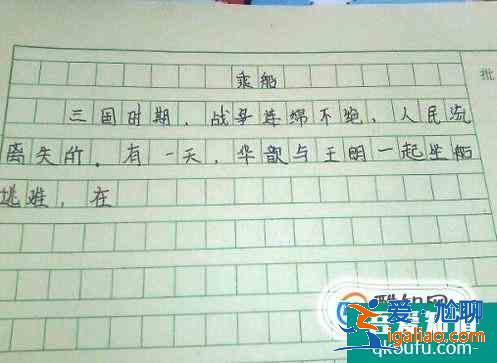 乘船
批
三国时期，战争连绵不绝，人民流
离失的。有一天，华歆与王明一起坐船
逃难，在
爱尴聊
qk3u1u.com